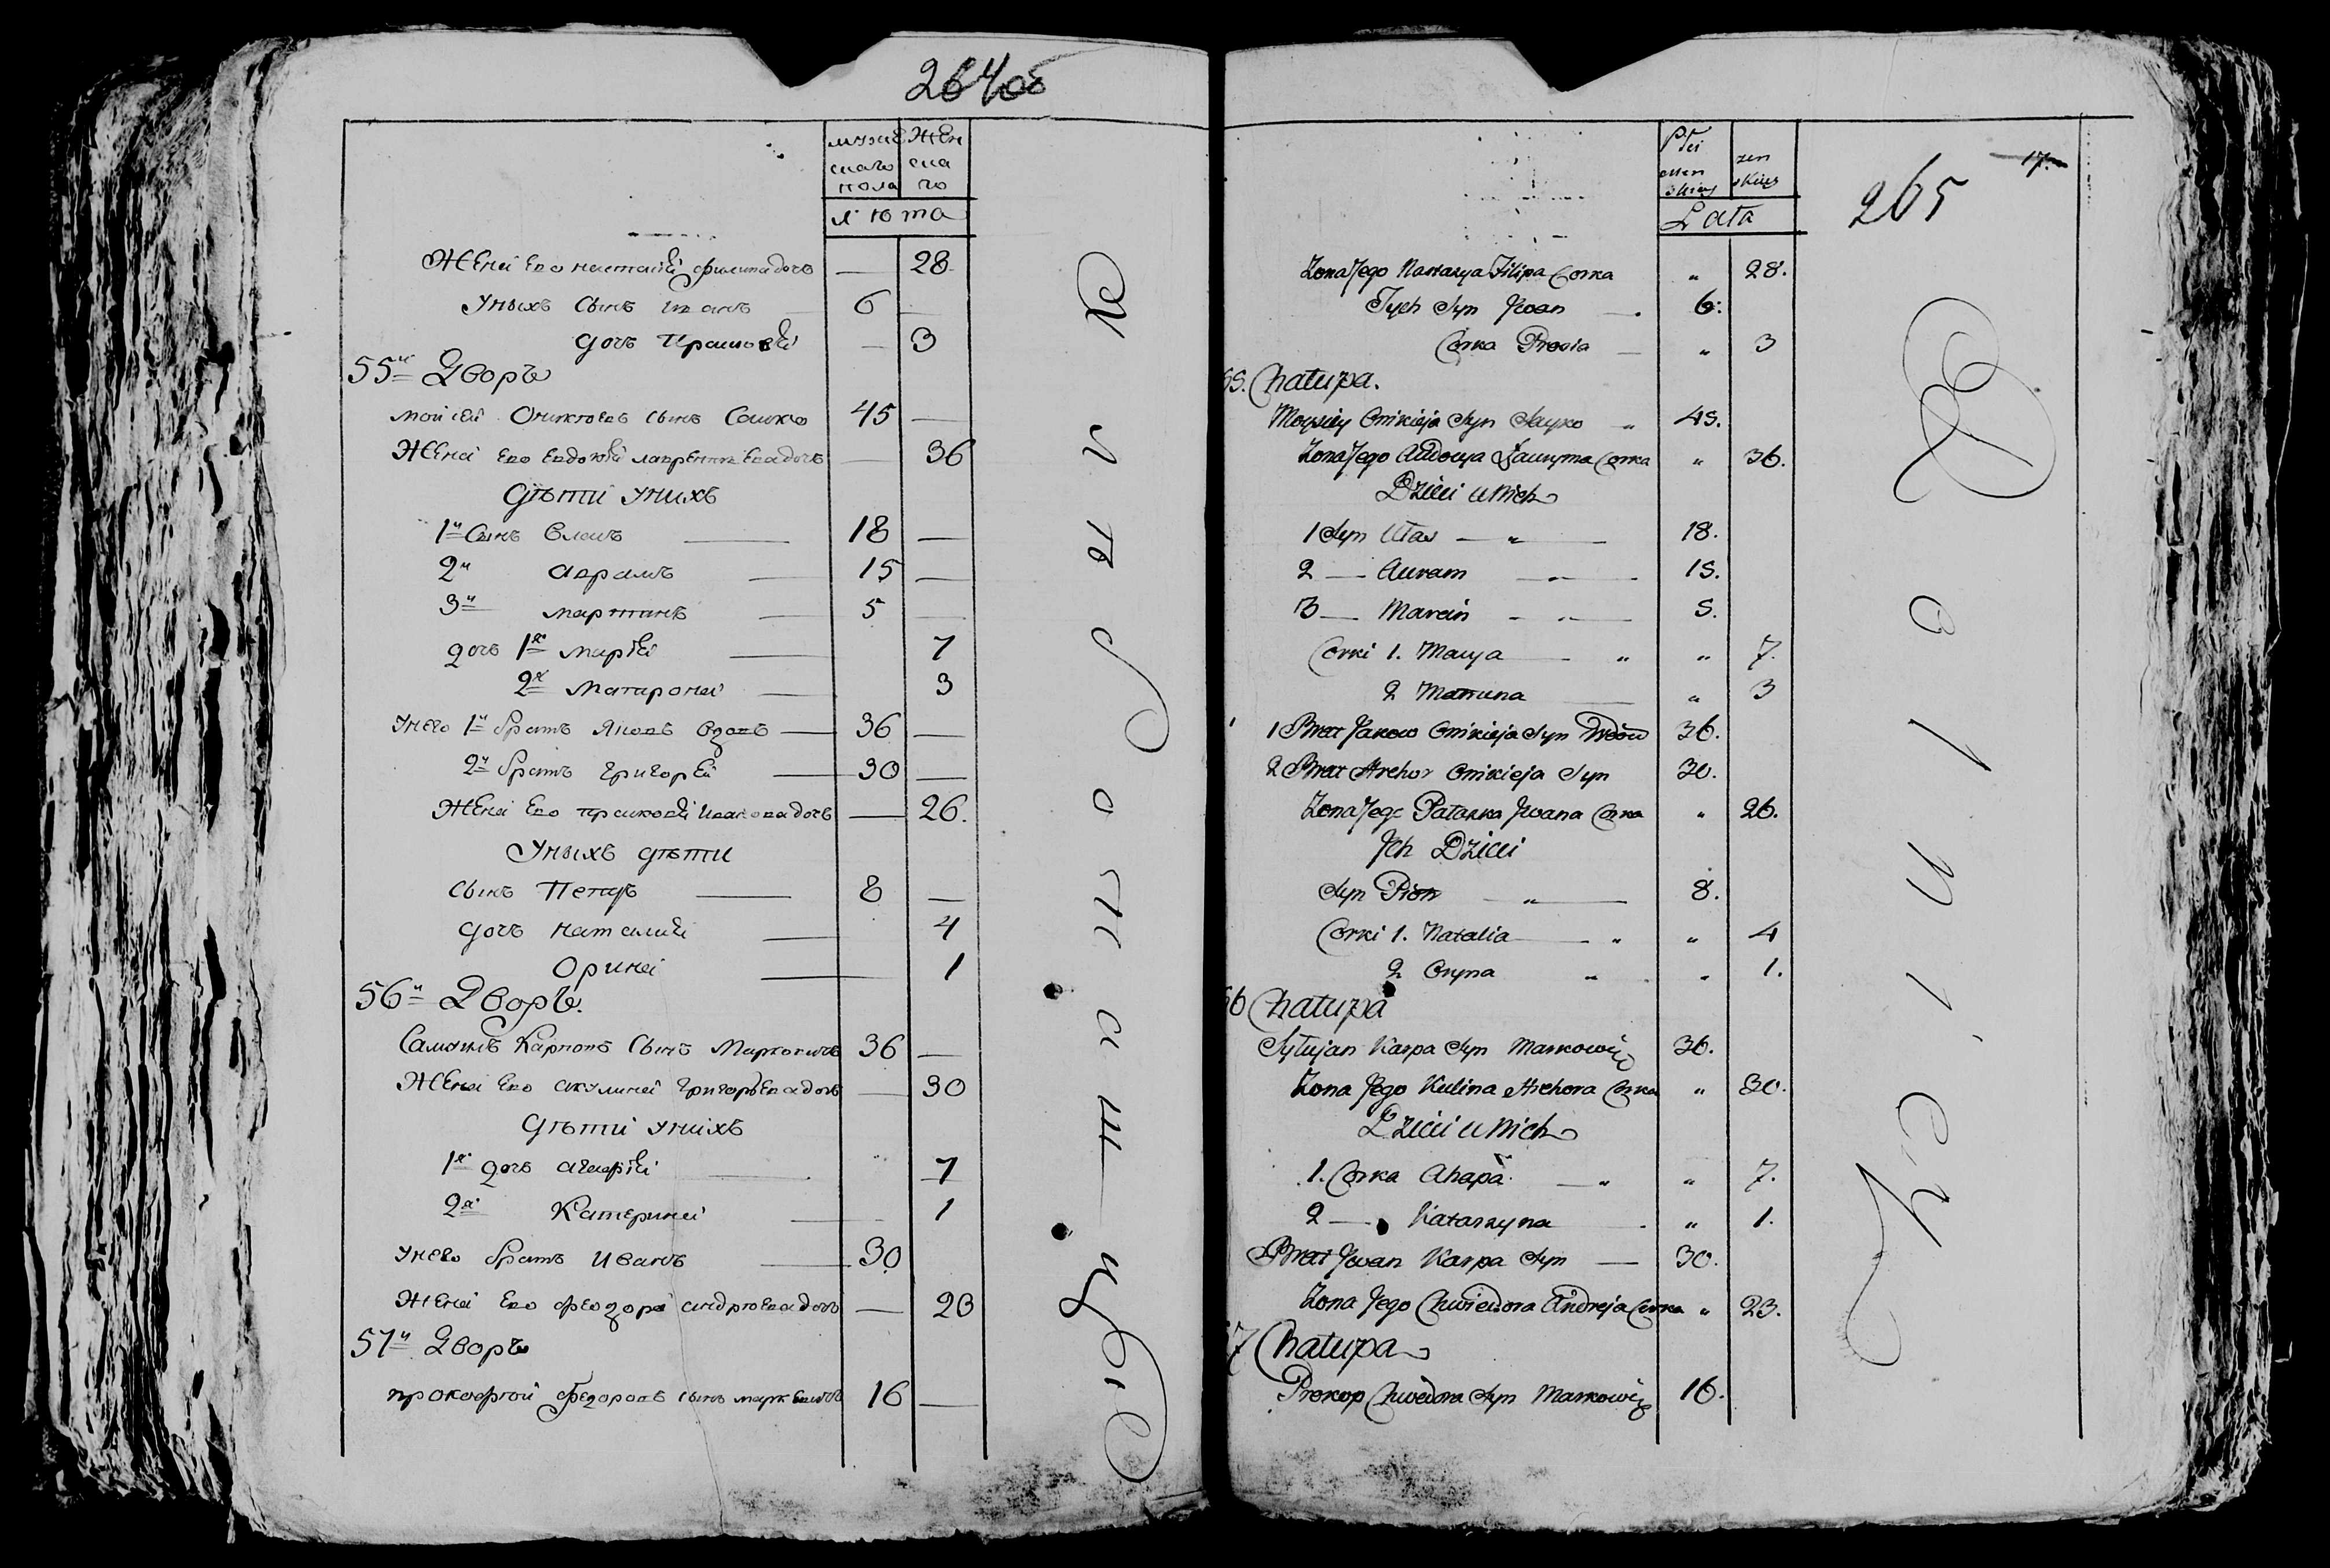 264об
мужес Жен
скаго ска
пола го
лѣта
Жена Ево настасiя филипадочь — 28
Уныхъ Сынъ иванъ 6 —
дочь Прасковiя — 3
55й Дворъ
мойсей Оникѣевъ сынъ Сашко 45 —
Жена Ево Евдокiя лаврентиевадочь — 36
дѣти унихъ
1й Сынъ Власъ — 18 —
2й аврамъ — 15 —
3й мартинъ — 5 —
дочь 1я марiя — 7
2я матрона — 3
унего 1й братъ Яковъ вдовъ — 36 —
2й братъ григорей — 30 —
Жена Ево прасковiя Ивановадочь — 26.
Уныхъ дѣти
сынъ Петръ — 8 —
дочь наталия — 4
Орина — 1
56й Дворъ.
Самоилъ Карповъ Сынъ Марковичъ 36 —
Жена Ево акулина григорьевадочь — 30
дѣти унихъ
1я дочь агафiя — 7
2я Катерина — 1
унего братъ Иванъ — 30
Жена Ево феодора андреевадочь — 23
57й Дворъ
прокофтой Федоровъ сынъ марковичъ 16 —
265
17.
Płci
męs zen
skiey skiey
Lata
Zona Jego Nastazya Filipa Corka „ 28.
Tych Syn Jwan — 6.
Corka Prosia — „ 3
55. Chałupa.
Moysiey Onikieja Syn Sayko „ 45.
Zona Jego Audocya Ławryna Corka „ 36.
Dzieci u Nich
1 Syn Ułas — „ — 18.
2 — Auram — „ — 15.
3 — Marcin — „ — 5.
Corki 1. Marya — „ „ 7.
2 Matruna — „ 3
1 Brat Jakow Onikieja Syn Wdow 36.
2 Brat Hrehor Onikieja Syn 30.
Zona Jego Paraska Jwana Corka „ 26.
Jch Dzieci
Syn Piotr — „ — 8.
Corki 1. Natalia — „ „ 4
2 Oryna „ „ 1.
56 Chałupa
Karpa Syn Markowicz 36.
Zona Jego Kulina Hrehora Corka „ 30.
Dzieci u Nich
1. Corka Ahapa — „ „ 7.
2 — Katarzyna — „ 1.
Brat Jwan Karpa Syn — 30.
Zona Jego Chwiedora Andreja Corka „ 23.
57 Chałupa
Prokop Chwedora Syn Markowicz 16.